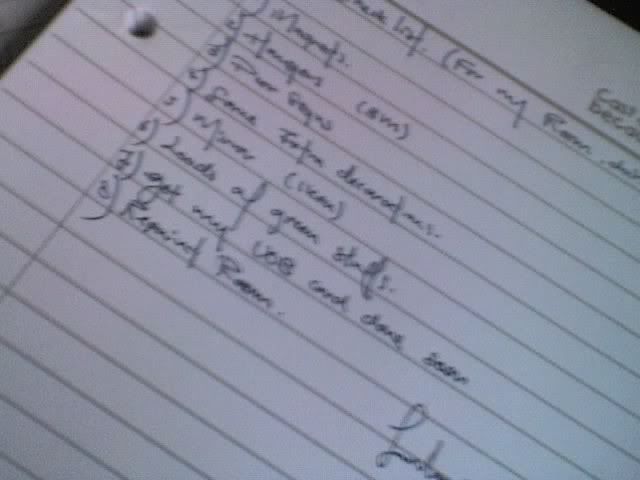 list. (For my Room.
1) Magnets.
2) Hangers (8m)
3) Door Signs
4) Some Extra decorations.
5) Mirror (IKEA)
6) Loads of green stuffs.
7) get my card done soon
8) Repaint Room.